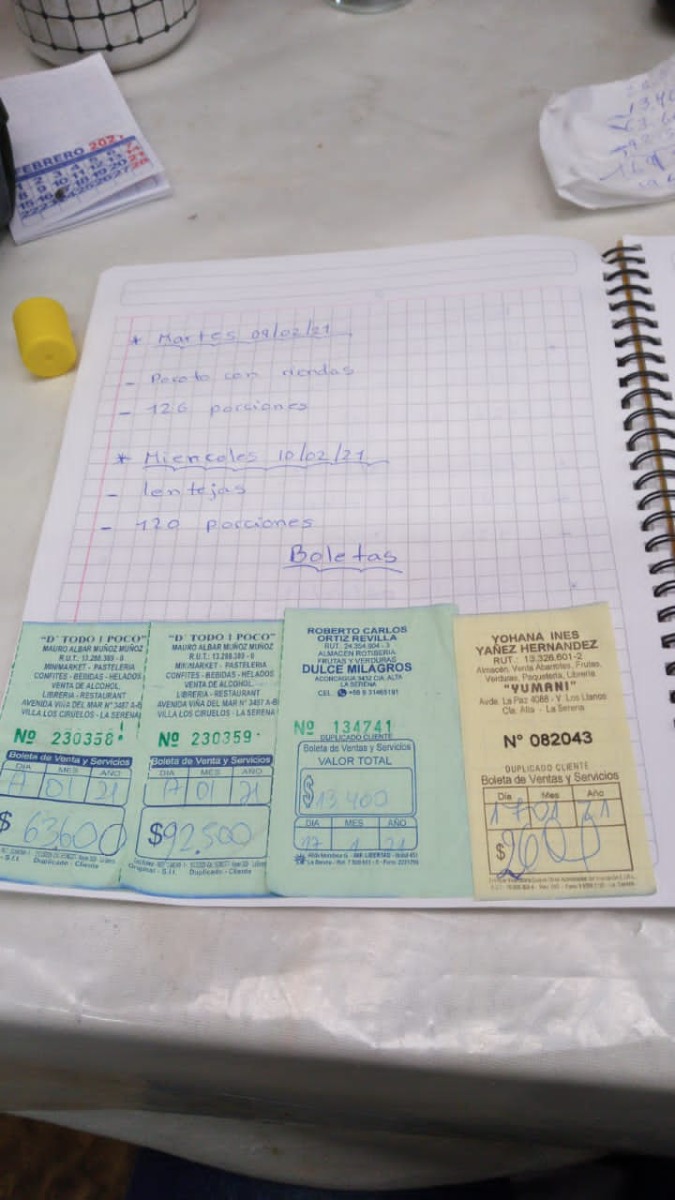 FEBRERO 202
* Martes 09/02/21
- Poroto con riendas
- 126 porciones
* Miercoles 10/02/21
- lentejas
- 120 porciones
Boletas
"D' TODO 1 POCO"
MAURO ALBAR MUÑOZ MUÑOZ
R.U.T.: 13.288.389 - 0
MINIMARKET - PASTELERIA
CONFITES - BEBIDAS - HELADOS
VENTA DE ALCOHOL
LIBRERIA - RESTAURANT
AVENIDA VIÑA DEL MAR Nº 3487 A-B
VILLA LOS CIRUELOS - LA SERENA
Nº 230358
Boleta de Ventas y Servicios
DIA MES AÑO
17 01 21
$ 63600
Duplicado - Cliente
"D' TODO 1 POCO"
MAURO ALBAR MUÑOZ MUÑOZ
R.U.T.: 13.288.389 - 0
MINIMARKET - PASTELERIA
CONFITES - BEBIDAS - HELADOS
VENTA DE ALCOHOL
LIBRERIA - RESTAURANT
AVENIDA VIÑA DEL MAR Nº 3487 A-B
VILLA LOS CIRUELOS - LA SERENA
Nº 230359
Boleta de Ventas y Servicios
DIA MES AÑO
17 01 21
$92.500
Original - S.I.I. Duplicado - Cliente
ROBERTO CARLOS
ORTIZ REVILLA
RUT: 24.354.904 - 3
ALMACEN ROTISERIA
FRUTAS Y VERDURAS
DULCE MILAGROS
ACONCAGUA 3452 CIA. ALTA
LA SERENA
CEL. +56 9 31465191
Nº 134741
DUPLICADO CLIENTE
Boleta de Ventas y Servicios
VALOR TOTAL
$13.400
DIA MES AÑO
17 1 21
YOHANA INES
YAÑEZ HERNANDEZ
RUT.: 13.328.601-2
Almacén, Venta Abarrotes, Frutas,
Verduras, Paquetería, Librería
"YUMANI"
Avda. La Paz 4088 - V. Los Llanos
Cia. Alta - La Serena
N° 082043
DUPLICADO CLIENTE
Boletas de Ventas y Servicios
Día Mes Año
17 01 21
$2000